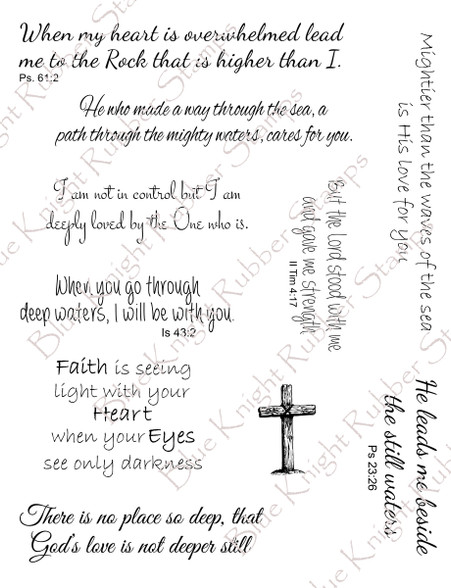 When my heart is overwhelmed lead
me to the Rock that is higher than I.
Ps. 61:2
He who made a way through the sea, a
path through the mighty waters, cares for you.
I am not in control but I am
deeply loved by the One who is.
When you go through
deep waters, I will be with you
Is 43:2
Faith is seeing
light with your
Heart
when your Eyes
see only darkness
There is no place so deep, that
God's love is not deeper still
But the Lord stood with me
and gave me strength
II Tim 4:17
Mightier than the waves of the sea
is His love for you
He leads me beside
the still waters
Ps 23:26
Blue Knight Rubber Stamps